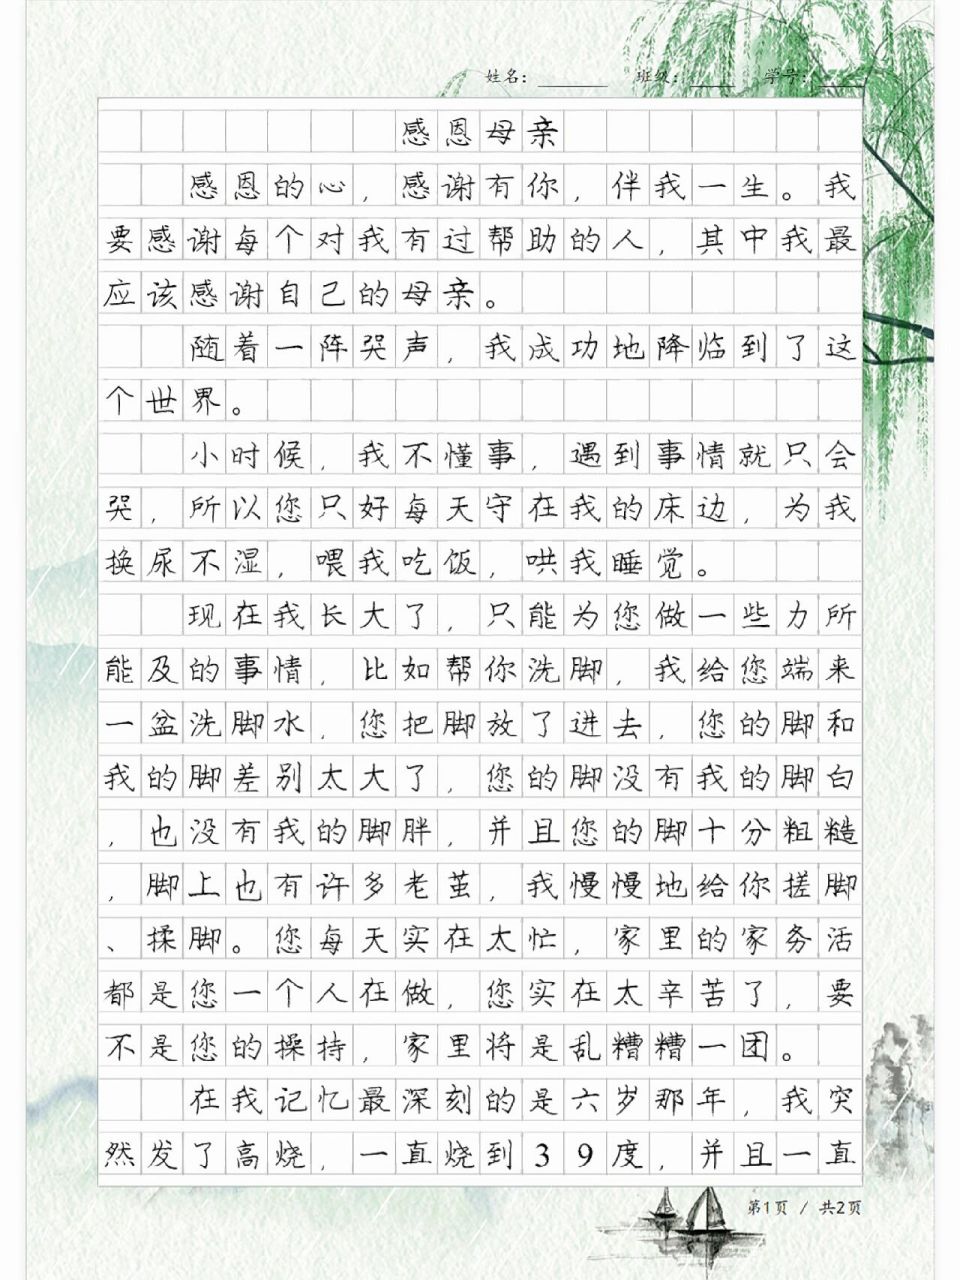 姓名：______ 班级：____ 学号：____
感恩母亲
感恩的心，感谢有你，伴我一生。我
要感谢每个对我有过帮助的人，其中我最
应该感谢自己的母亲。
随着一阵哭声，我成功地降临到了这
个世界。
小时候，我不懂事，遇到事情就只会
哭，所以您只好每天守在我的床边，为我
换尿不湿，喂我吃饭，哄我睡觉。
现在我长大了，只能为您做一些力所
能及的事情，比如帮你洗脚，我给您端来
一盆洗脚水，您把脚放了进去，您的脚和
我的脚差别太大了，您的脚没有我的脚白
，也没有我的脚胖，并且您的脚十分粗糙
，脚上也有许多老茧，我慢慢地给你搓脚
、揉脚。您每天实在太忙，家里的家务活
都是您一个人在做，您实在太辛苦了，要
不是您的操持，家里将是乱糟糟一团。
在我记忆最深刻的是六岁那年，我突
然发了高烧，一直烧到39度，并且一直
第1页 / 共2页